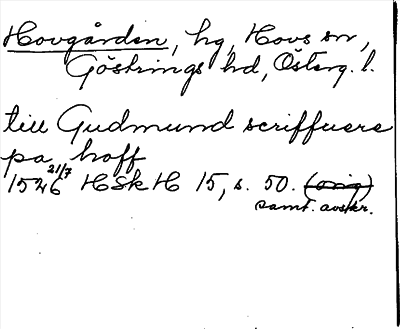 Hovgården, hg, Hovs sn,
Göstrings hd, Österg. l.
till Gudmund scriffuere
pa hoff
1526 21/7 HSkH 15, s. 50. (orig)
samt. avskr.